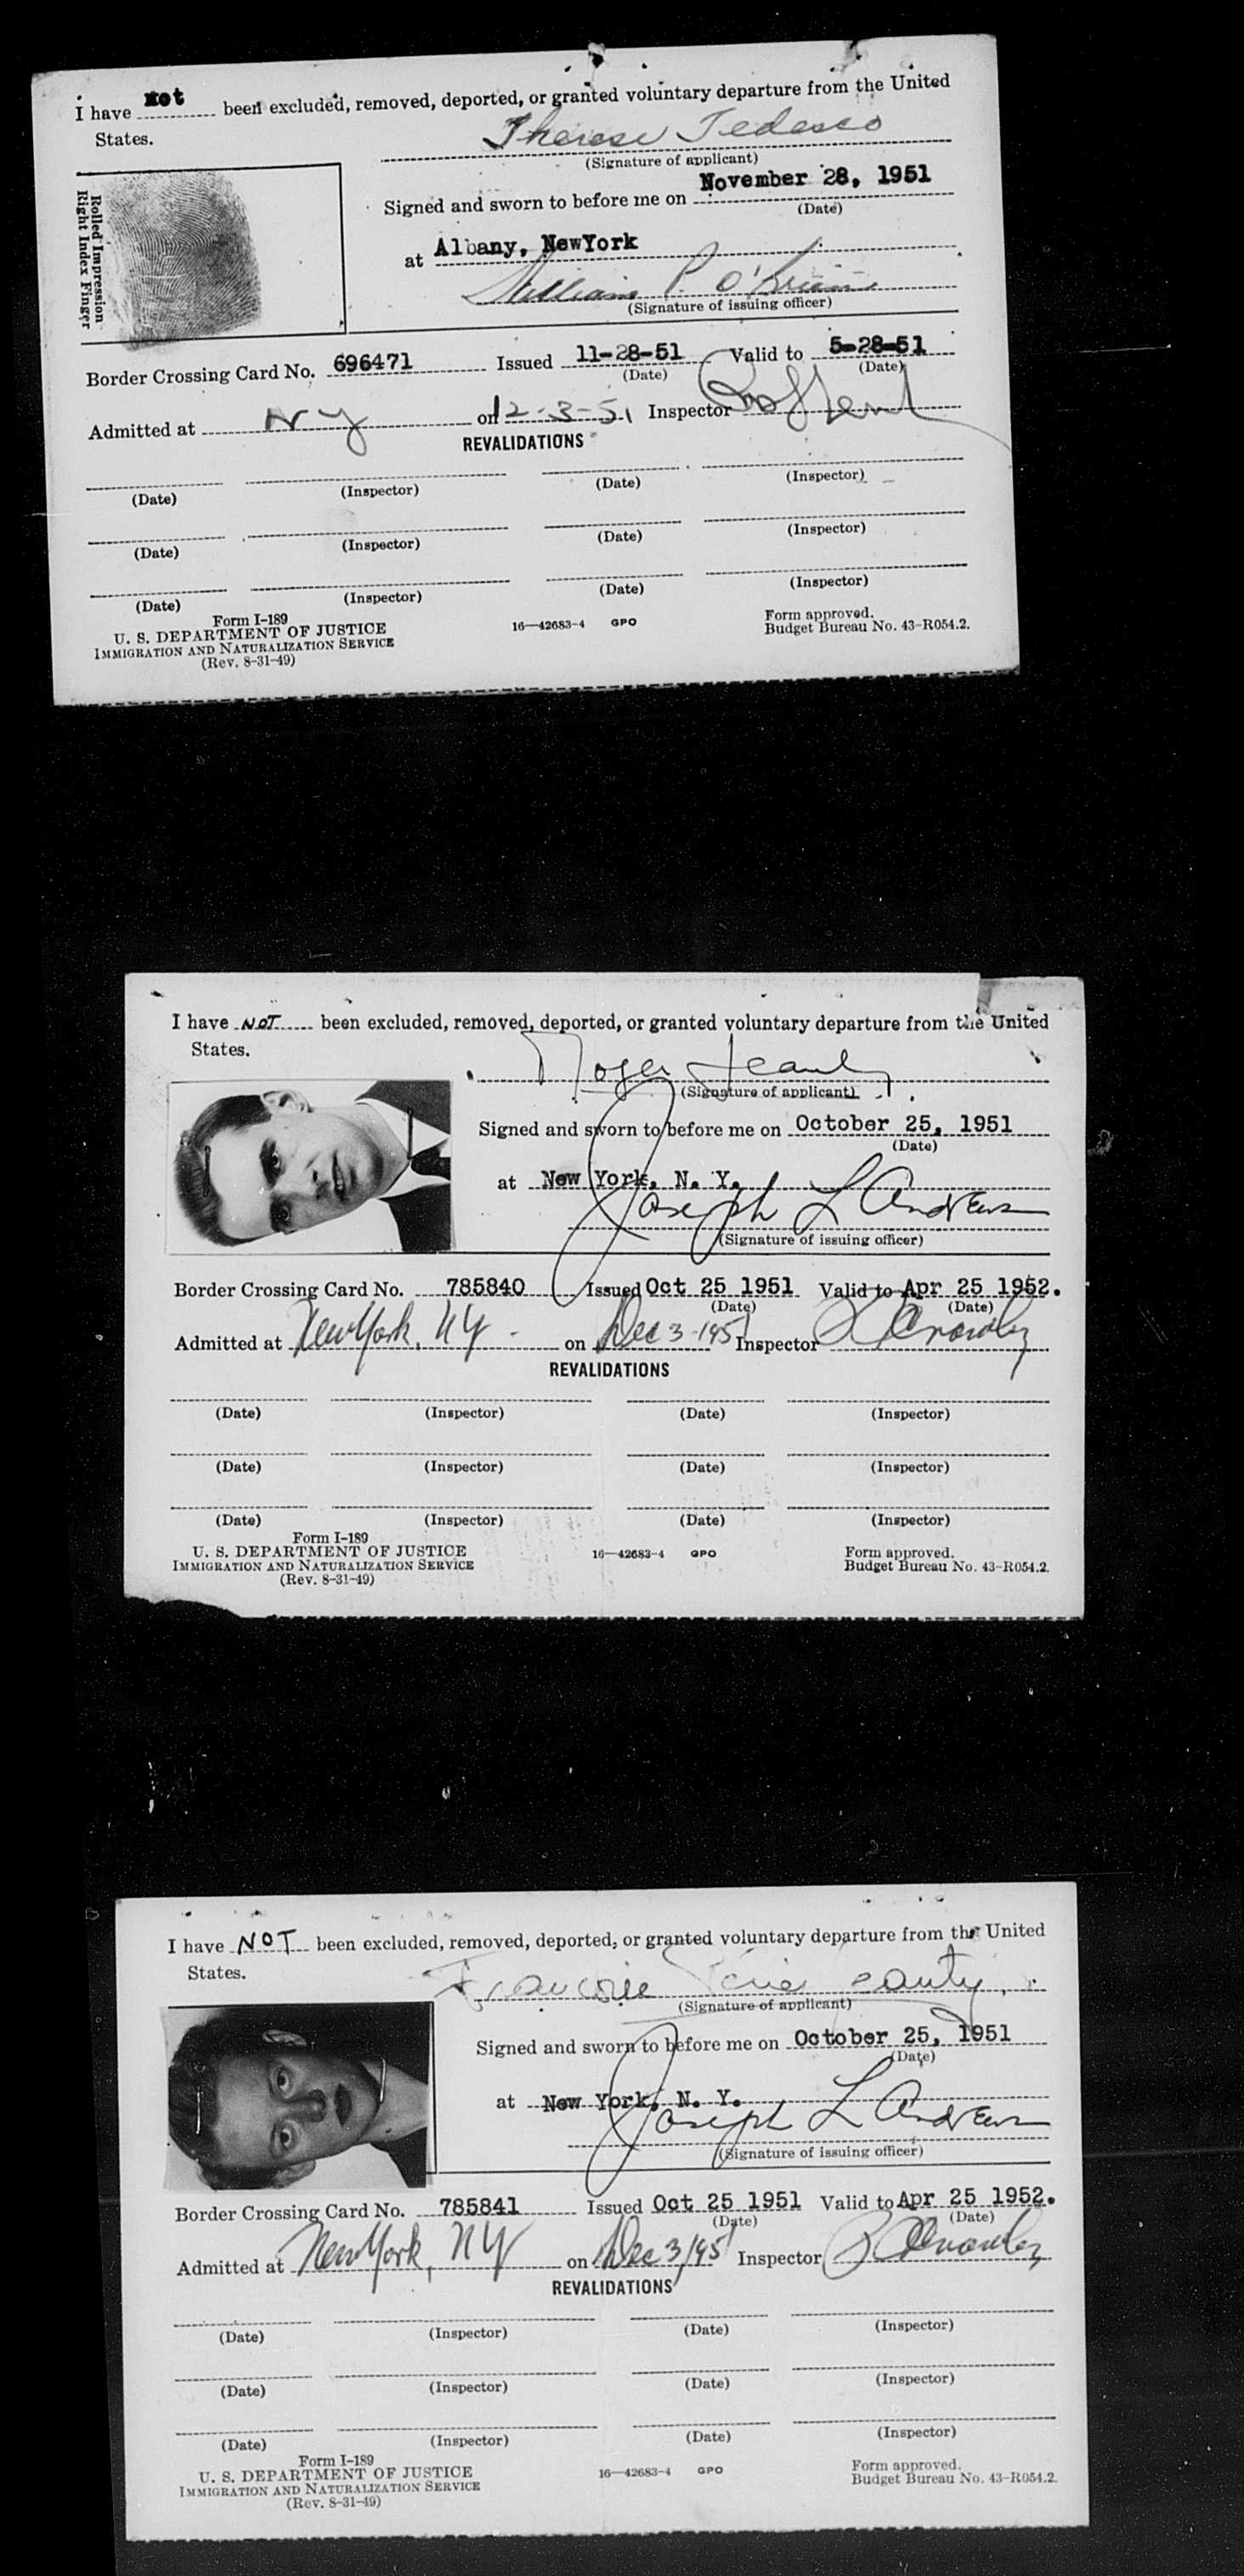 I have Not been excluded, removed, deported, or granted voluntary departure from the United
States.
Therese Tedesco
(Signature of applicant)
Rolled Impression
Right Index Finger
Signed and sworn to before me on November 28, 1951
(Date)
at Albany, NewYork
William P. O'Brien
(Signature of issuing officer)
Border Crossing Card No. 696471 Issued 11-28-51 Valid to 5-28-51
(Date) (Date)
Admitted at NY on 12-3-51 Inspector
REVALIDATIONS
(Date) (Inspector) (Date) (Inspector)
(Date) (Inspector) (Date) (Inspector)
(Date) (Inspector) (Date) (Inspector)
Form I-189
U. S. DEPARTMENT OF JUSTICE
IMMIGRATION AND NATURALIZATION SERVICE
(Rev. 8-31-49)
16—42683-4 GPO
Form approved.
Budget Bureau No. 43-R054.2.
I have NOT been excluded, removed, deported, or granted voluntary departure from the United
States.
Roger
(Signature of applicant)
Signed and sworn to before me on October 25, 1951
(Date)
at New York, N. Y.
Joseph L Andrews
(Signature of issuing officer)
Border Crossing Card No. 785840 Issued Oct 25 1951 Valid to Apr 25 1952.
(Date) (Date)
Admitted at New York, NY - on Dec 3-1951 Inspector
REVALIDATIONS
(Date) (Inspector) (Date) (Inspector)
(Date) (Inspector) (Date) (Inspector)
(Date) (Inspector) (Date) (Inspector)
Form I-189
U. S. DEPARTMENT OF JUSTICE
IMMIGRATION AND NATURALIZATION SERVICE
(Rev. 8-31-49)
16—42683-4 GPO
Form approved.
Budget Bureau No. 43-R054.2.
I have NOT been excluded, removed, deported, or granted voluntary departure from the United
States.
(Signature of applicant)
Signed and sworn to before me on October 25, 1951
(Date)
at New York, N. Y.
Joseph L Andrews
(Signature of issuing officer)
Border Crossing Card No. 785841 Issued Oct 25 1951 Valid to Apr 25 1952.
(Date) (Date)
Admitted at New York, NY on Dec 3/1951 Inspector
REVALIDATIONS
(Date) (Inspector) (Date) (Inspector)
(Date) (Inspector) (Date) (Inspector)
(Date) (Inspector) (Date) (Inspector)
Form I-189
U. S. DEPARTMENT OF JUSTICE
IMMIGRATION AND NATURALIZATION SERVICE
(Rev. 8-31-49)
16—42683-4 GPO
Form approved.
Budget Bureau No. 43-R054.2.